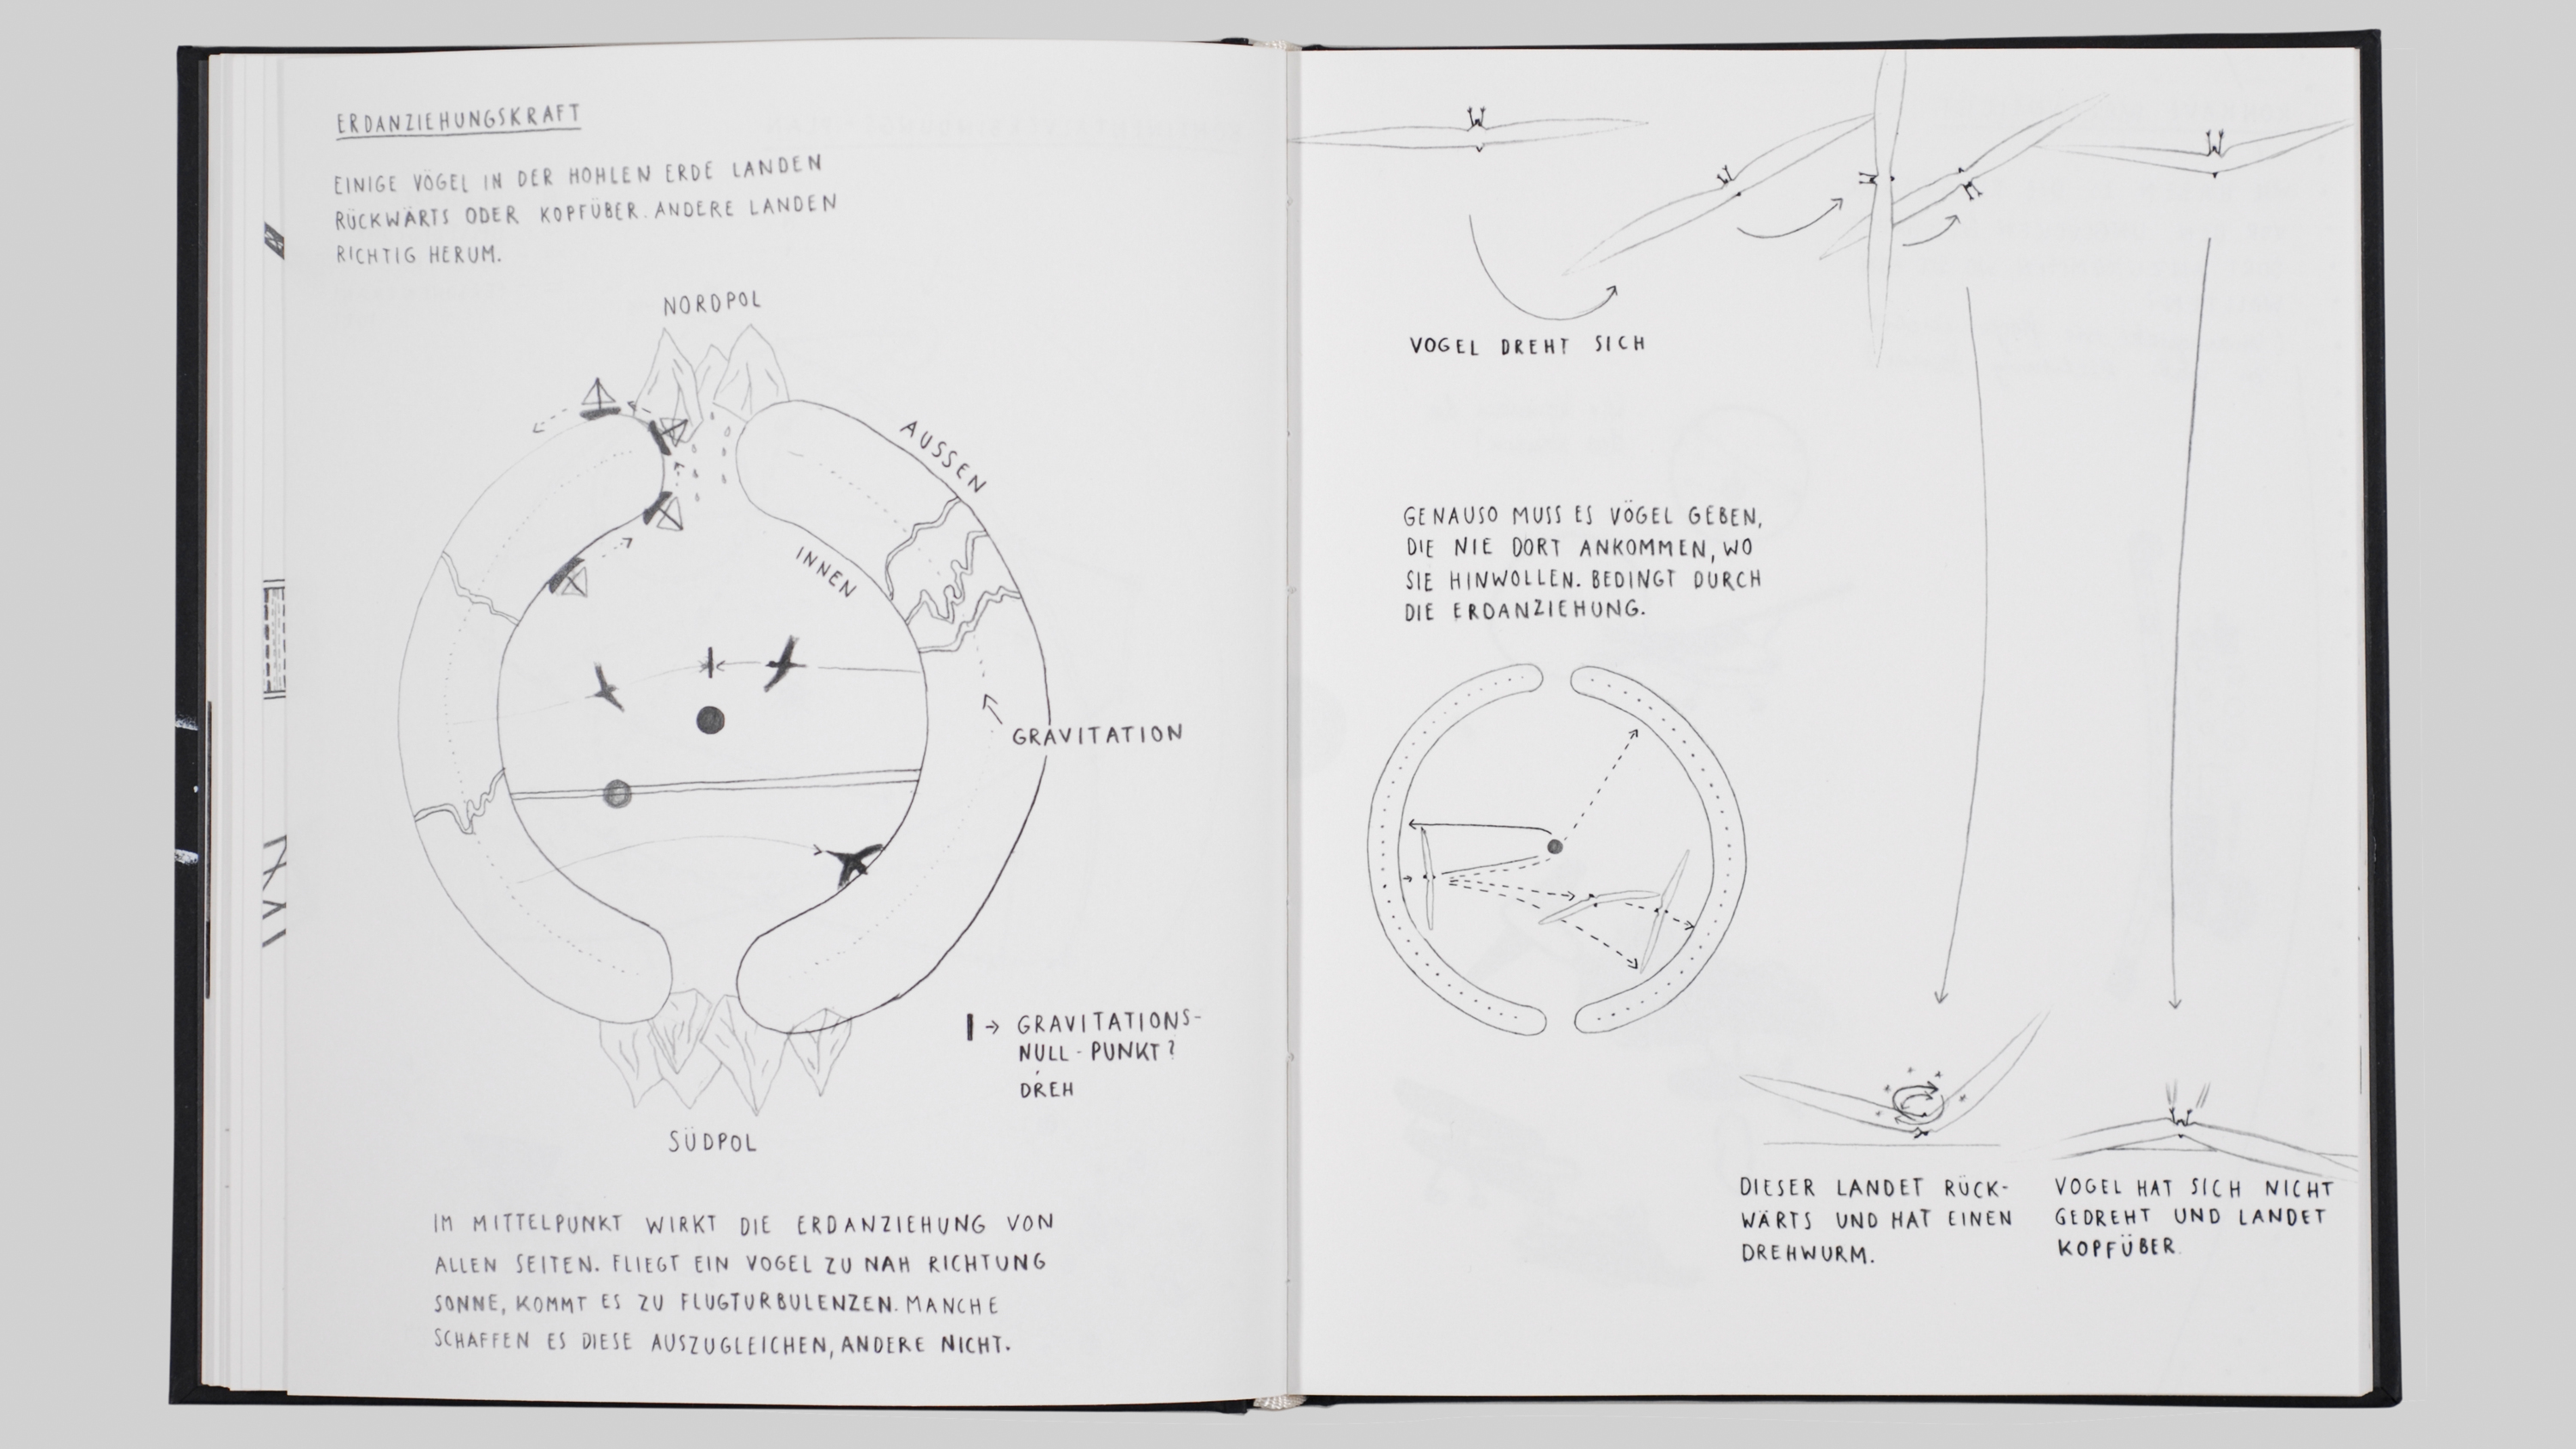 ERDANZIEHUNGSKRAFT
EINIGE VÖGEL IN DER HOHLEN ERDE LANDEN
RÜCKWÄRTS ODER KOPFÜBER. ANDERE LANDEN
RICHTIG HERUM.
NORDPOL
AUSSEN
INNEN
GRAVITATION
GRAVITATIONS-
NULL-PUNKT?
DREH
SÜDPOL
IM MITTELPUNKT WIRKT DIE ERDANZIEHUNG VON
ALLEN SEITEN. FLIEGT EIN VOGEL ZU NAH RICHTUNG
SONNE, KOMMT ES ZU FLUGTURBULENZEN. MANCHE
SCHAFFEN ES DIESE AUSZUGLEICHEN, ANDERE NICHT.
VOGEL DREHT SICH
GENAUSO MUSS ES VÖGEL GEBEN,
DIE NIE DORT ANKOMMEN, WO
SIE HINWOLLEN. BEDINGT DURCH
DIE ERDANZIEHUNG.
DIESER LANDET RÜCK-
WÄRTS UND HAT EINEN
DREHWURM.
VOGEL HAT SICH NICHT
GEDREHT UND LANDET
KOPFÜBER.